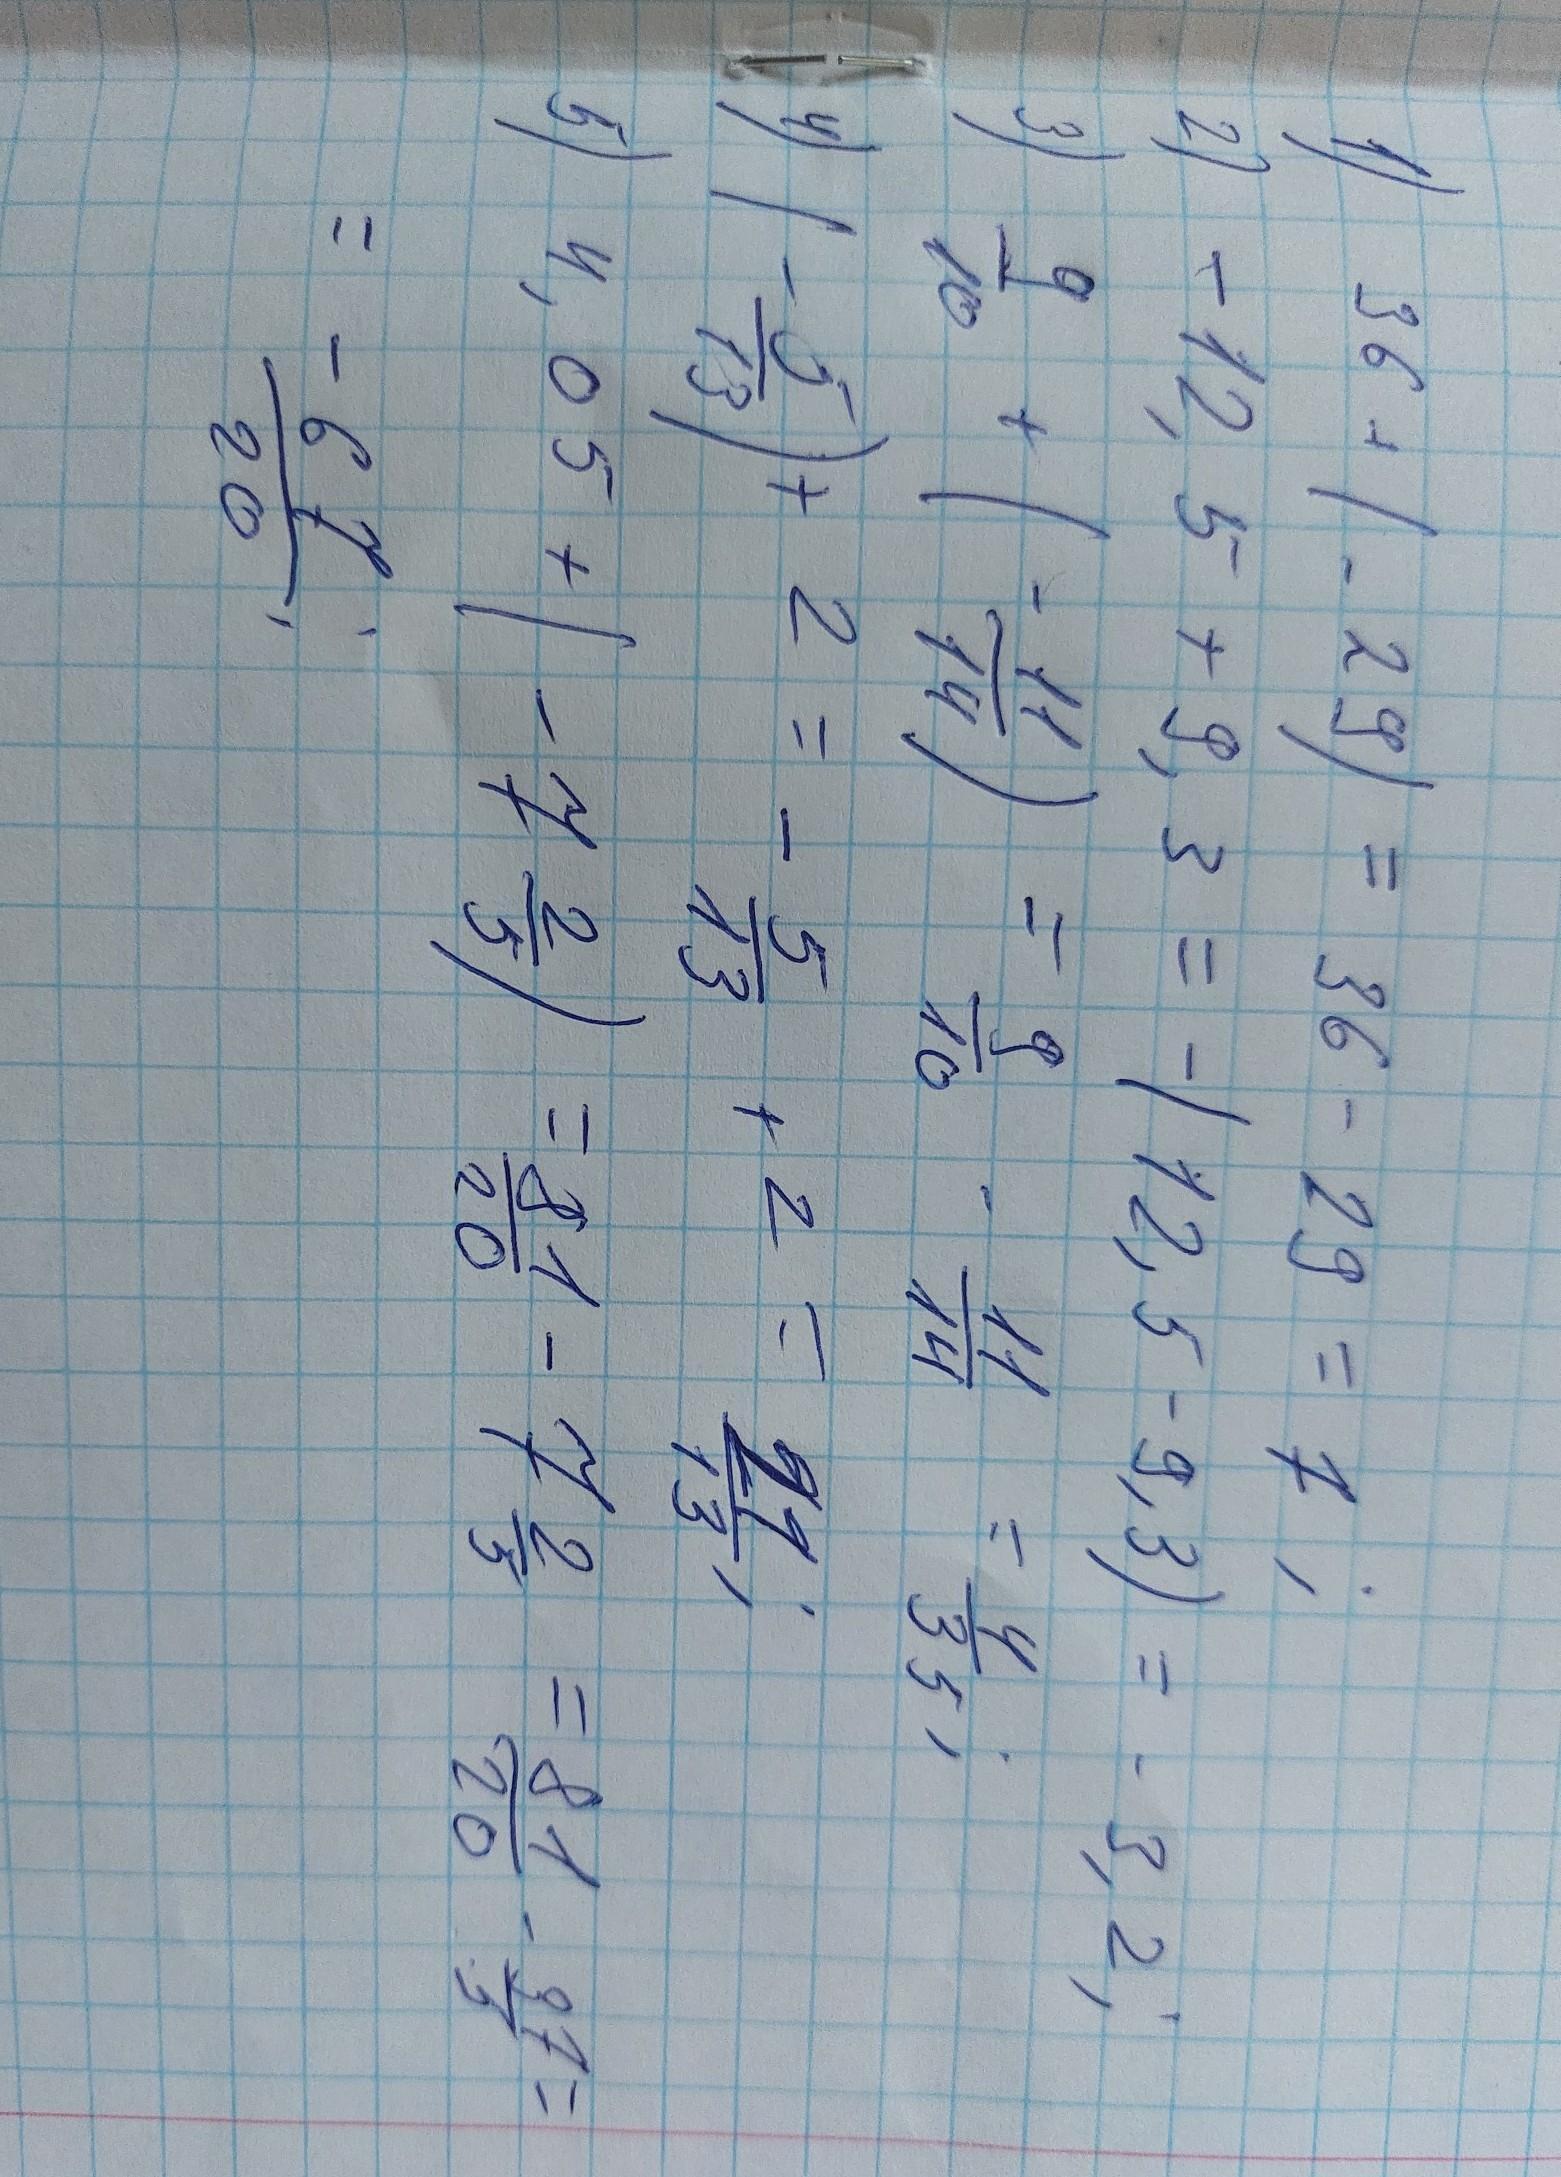 1) 36 + (-29) = 36 - 29 = 7;
2) -12,5 + 9,3 = -(12,5 - 9,3) = -3,2;
3) 9/10 + (-11/14) = 9/10 - 11/14 = 4/35;
4) (-5/13) + 2 = -5/13 + 2 = 21/13;
5) 4,05 + (-7 2/5) = 81/20 - 7 2/5 = 81/20 - 37/5 =
= -67/20;